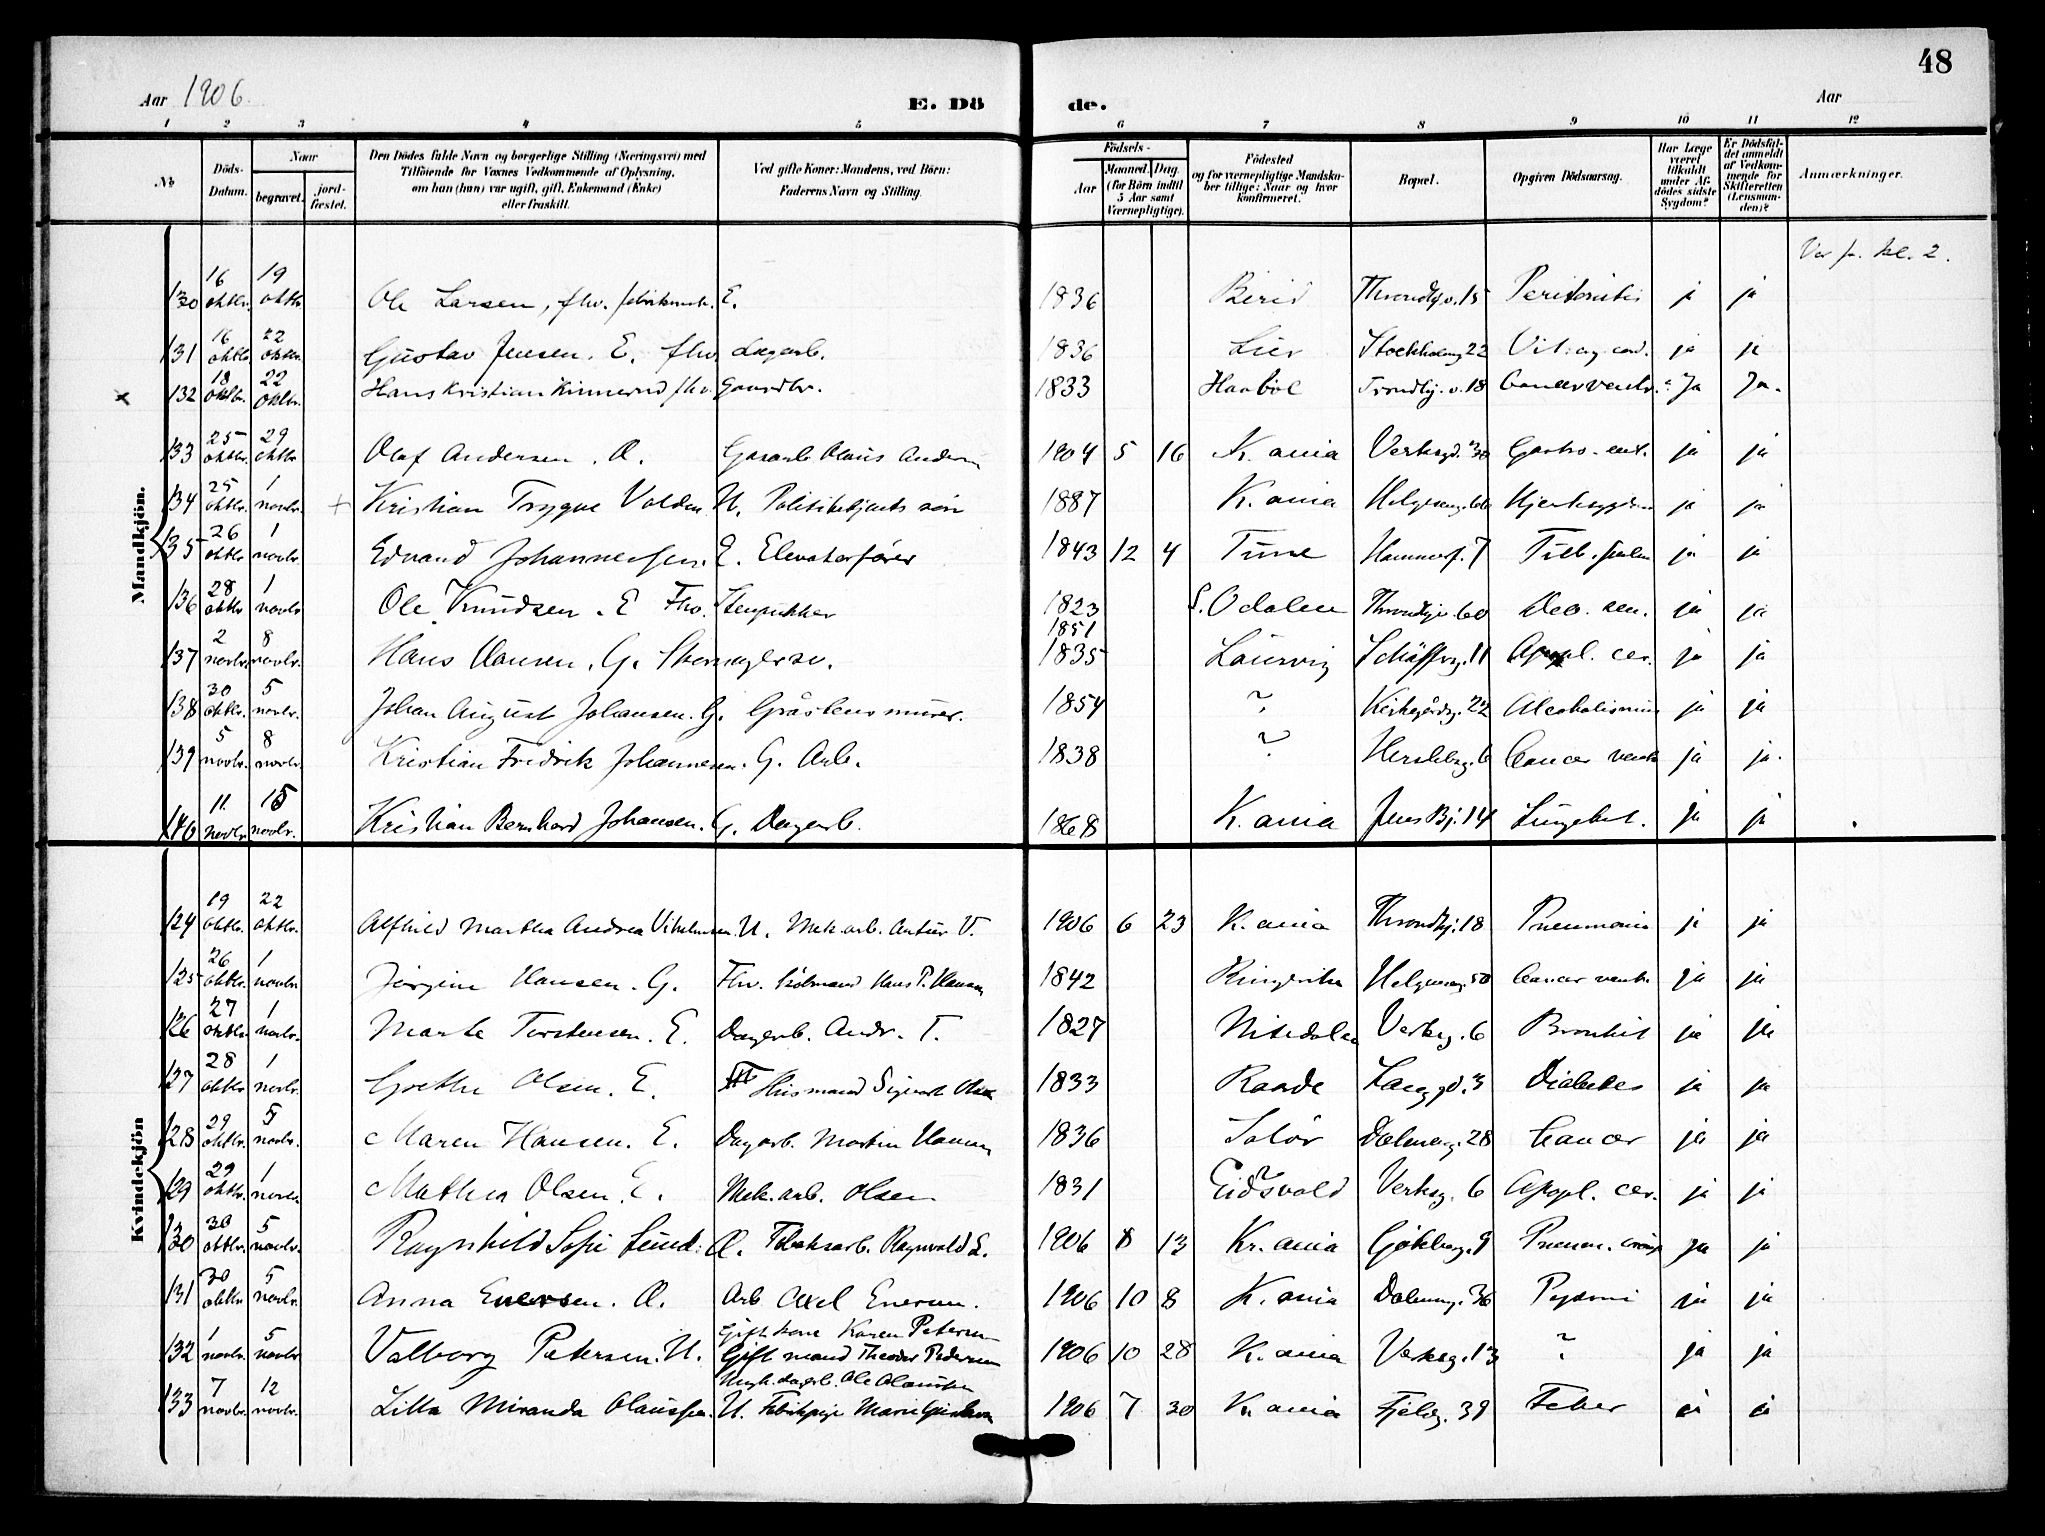 48
Aar 1906.
E. Dö
de.
Aar
1 2 3 4 5 6 7 8 9 10 11 12
No
Döds-Datum.
Naar
begravet.
jord-fæstet.
Den Dödes fulde Navn og borgerlige Stilling (Næringsvei) med Tilföiende for Voxnes Vedkommende af Oplysning, om han (hun) var ugift, gift, Enkemand (Enke) eller fraskilt.
Ved gifte Koner: Mandens, ved Börn: Faderens Navn og Stilling.
Födsels-
Aar
Maaned. Dag.
(for Börn indtil 5 Aar samt Værnepligtige).
Födested og for værnepligtige Mandskaber tillige: Naar og hvor konfirmeret.
Bopæl.
Opgiven Dödsaarsag.
Har Læge været tilkaldt under Afdödes sidste Sygdom?
Er Dödsfaldet anmeldt af Vedkommende for Skifteretten (Lensmanden)?
Anmærkninger.
Mandkjön.
130 16 oktbr. 19 oktbr. Ole Larsen, fhv. E. 1836 Birid Throndhj.v. 15 Peritonitis ja ja
131 16 oktbr. 22 oktbr. Gustav Jensen. E. fhv. Lagarb. 1836 Lier Stockholmsg. 22 Vit. org. cord. ja ja
x 132 18 oktbr. 22 oktbr. Hans Kristian Kinnerud fhv. Gaardbr. 1833 Haabøl Trondhj.v. 18 Cancer ventr. Ja Ja.
133 25 oktbr. 29 oktbr. Olaf Andersen. Æ. Gasarb. Olaus Andersen 1904 5 16 K.ania Verksgd. 30 Gastro-ent. ja ja
134 25 oktbr. 1 novbr. + Kristian Trygve Volden U. Politibetjents søn 1887 K.ania Helgesensg. 66 Hjertesygdom ja ja
135 26 oktbr. 1 novbr. Edvard Johannessen. E. Elevatorfører 1843 12 4 Tune Hammerf. 7 Tub. pulm ja ja
136 28 oktbr. 1 novbr. Ole Knudsen. E Fhv. Stenpukker 1823 S. Odalen Throndhjv. 60 Deb. sen. ja ja
1851
137 2 novbr. 8 novbr. Hans Hansen. G. 1835 Laurvig Schäffersg. 11 Apopl. cer. ja ja
138 30 oktbr. 5 novbr. Johan August Johansen. G. Gråstensmurer. 1854 ? Kirkegårdsg. 22 Alcoholismus ja ja
139 5 novbr. 8 novbr. Kristian Fredrik Johannesen. G. Arb. 1838 ? Herslebsg. 6 Cancer ventr. ja ja.
140 11 novbr. 15 novbr. Kristian Bernhard Johansen. G. Dagarb. 1868 K.ania Jens Bj. 14 Lungebet. ja ja
Kvindekjön
124 19 oktbr. 22 oktbr. Alfhild Martha Andrea Vilhelmsen. U. Mek. arb. Antur V. 1906 6 23 K.ania Throndhj. 18 Pneumonia ja ja
125 26 oktbr. 1 novbr. Jørgine Hansen. G. Fhv. Hans P. Hansen 1842 Ringerike Helgesensg. 50 Cancer ventr. ja ja
126 27 oktbr. 1 novbr. Marte Torstensen. E. Dagarb. Andr. T. 1827 Nitedalen Verksg. 6 Bronkit ja ja
127 28 oktbr. 1 novbr. Grethe Olsen. E. Husmand Sigvart Olsen 1833 Raade Langgd. 3 Diabetes ja ja
128 29 oktbr. 5 novbr. Maren Hansen. E. Dagarb. Martin Hansen 1836 Solør Dæleneng. 28 Cancer ja ja
129 29 oktbr. 1 novbr. Mathea Olsen. E. Mek. arb. Olsen 1831 Eidsvold Verksg. 6 Apopl. cer. ja ja
130 30 oktbr. 5 novbr. Ragnhild Sofie Lund. Æ. Tobaksarb. Ragnvald L. 1906 8 13 Kr.ania Gjøkbg. 9 Pneum. croup ja ja
131 30 oktbr. 5 novbr. Anna Enersen. Æ. Arb Axel Enersen. 1906 10 8 K.ania Dælneng. 36 Pyæmi ja ja
Gift kone Karen Petersen
132 1 novbr. 5 novbr. Valborg Petersen. U. Gift mand Theodor Pedersen 1906 10 28 K.ania Verksg. 13 ? ja ja
Ungk. dagarb. Ole Olaussen
133 7 novbr. 12 novbr. Lilla Miranda Olaussen. U. Fabrikpige Marie 1906 7 30 K.ania Fjeldg. 39 Feber ja ja